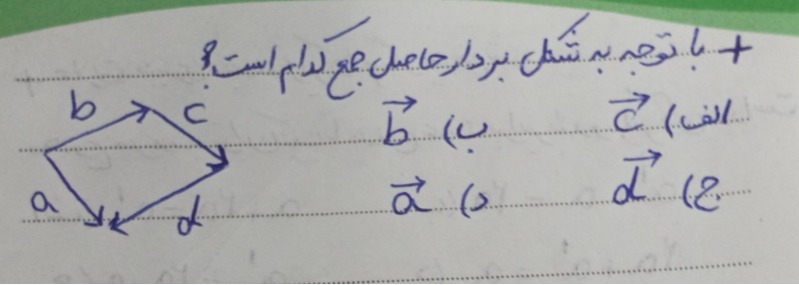 + با توجه به شکل بردار حاصل جمع کدام است؟
الف) c⃗ ب) b⃗
ج) d⃗ د) a⃗
b c
a d